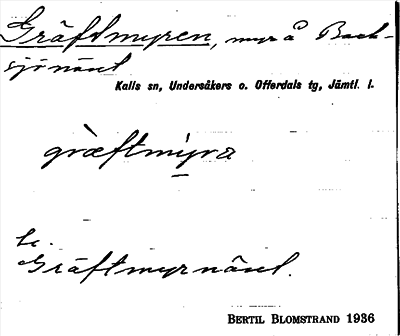 Gräftmyren, myr å Back-
sjönäset
Kalls sn, Undersåkers o. Offerdals tg, Jämtl. l.
græftmyra
Gräftmyrnäset.
BERTIL BLOMSTRAND 1936